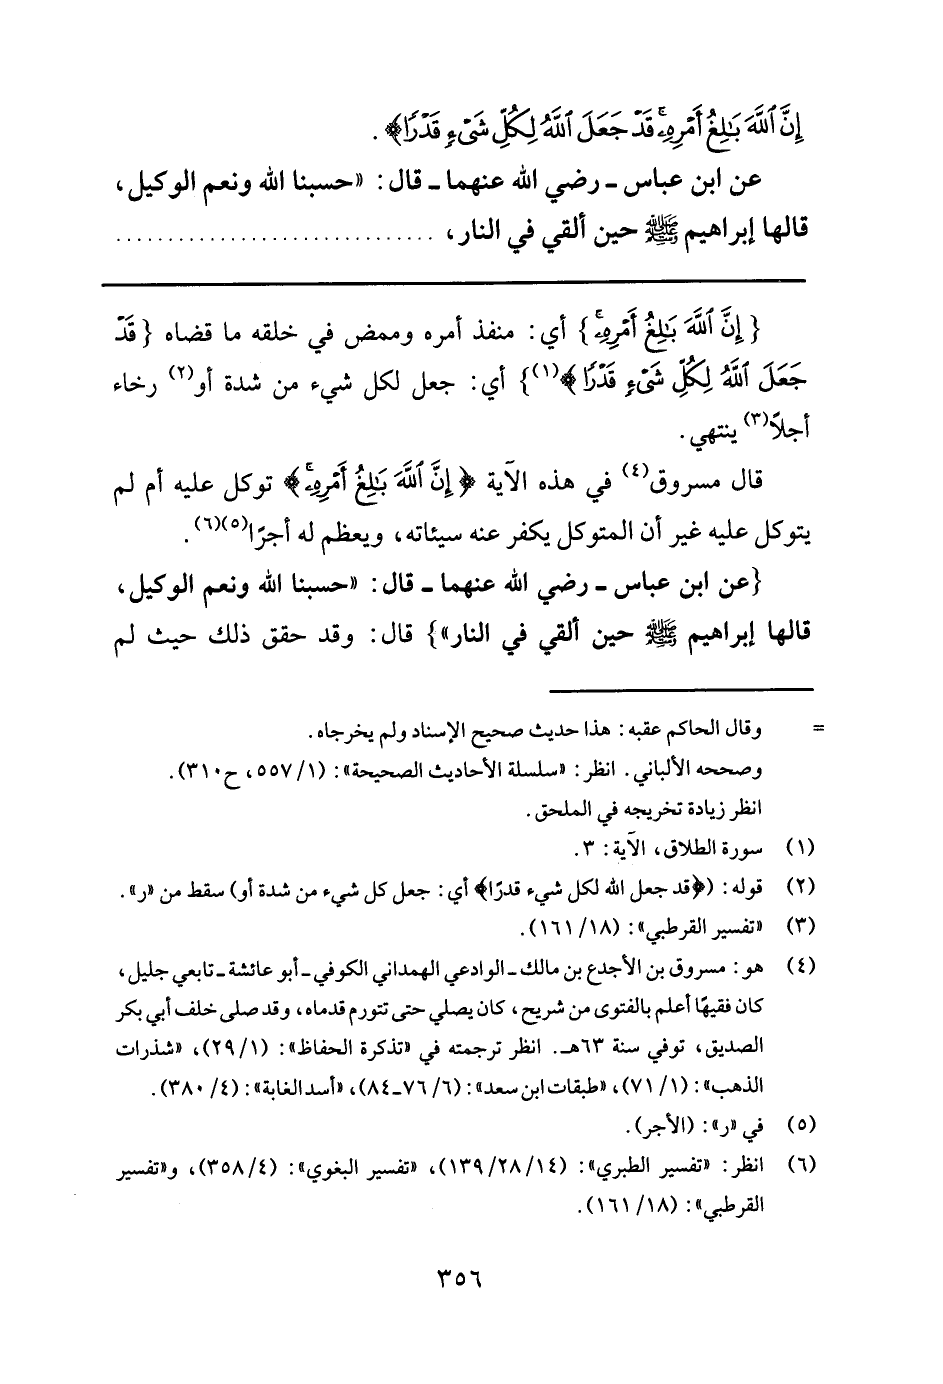 إِنَّ ٱللَّهَ بَٰلِغُ أَمْرِهِۦۚ قَدْ جَعَلَ ٱللَّهُ لِكُلِّ شَىْءٍ قَدْرًا﴾.
عن ابن عباس ـ رضي الله عنهما ـ قال: «حسبنا الله ونعم الوكيل،
قالها إبراهيم ﷺ حين ألقي في النار، ..............................
{إِنَّ ٱللَّهَ بَٰلِغُ أَمْرِهِۦۚ} أي: منفذ أمره وممض في خلقه ما قضاه {قَدْ
جَعَلَ ٱللَّهُ لِكُلِّ شَىْءٍ قَدْرًا﴾(١)} أي: جعل لكل شيء من شدة أو(٢) رخاء
أجلاً(٣) ينتهي.
قال مسروق(٤) في هذه الآية ﴿إِنَّ ٱللَّهَ بَٰلِغُ أَمْرِهِۦۚ﴾ توكل عليه أم لم
يتوكل عليه غير أن المتوكل يكفر عنه سيئاته، ويعظم له أجرًا(٥)(٦).
{عن ابن عباس ـ رضي الله عنهما ـ قال: «حسبنا الله ونعم الوكيل،
قالها إبراهيم ﷺ حين ألقي في النار»} قال: وقد حقق ذلك حيث لم
= وقال الحاكم عقبه: هذا حديث صحيح الإسناد ولم يخرجاه.
وصححه الألباني. انظر: «سلسلة الأحاديث الصحيحة»: (١/ ٥٥٧، ح٣١٠).
انظر زيادة تخريجه في الملحق.
(١) سورة الطلاق، الآية: ٣.
(٢) قوله: (﴿قد جعل الله لكل شيء قدرًا﴾ أي: جعل كل شيء من شدة أو) سقط من «ر».
(٣) «تفسير القرطبي»: (١٨/ ١٦١).
(٤) هو: مسروق بن الأجدع بن مالك ـ الوادعي الهمداني الكوفي ـ أبو عائشة ـ تابعي جليل،
كان فقيهًا أعلم بالفتوى من شريح، كان يصلي حتى تتورم قدماه، وقد صلى خلف أبي بكر
الصديق، توفي سنة ٦٣هـ. انظر ترجمته في «تذكرة الحفاظ»: (١/ ٢٩)، «شذرات
الذهب»: (١/ ٧١)، «طبقات ابن سعد»: (٦/ ٧٦ـ٨٤)، «أسد الغابة»: (٤/ ٣٨٠).
(٥) في «ر»: (الأجر).
(٦) انظر: «تفسير الطبري»: (١٤/ ٢٨/ ١٣٩)، «تفسير البغوي»: (٤/ ٣٥٨)، و«تفسير
القرطبي»: (١٨/ ١٦١).
٣٥٦